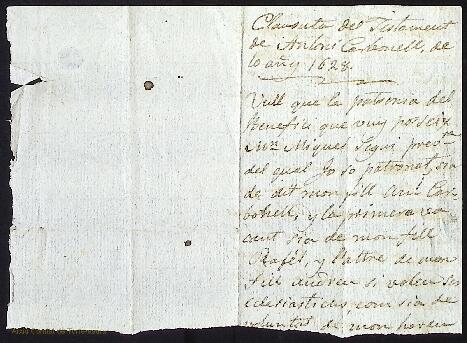 Clausula del Testament
de Antoni Carbonell, de
lo añy 1628.
Vull que la patronia del
Benefici que vuy posseix
Mn Miquel Segui prev.
del qual Jo so patronat, sia
de dit mon fill Ant Car-
bonell, y la primera va
cant sia de mon fill
Rafel, y l'altre de mon
fill Andreu si volen ser
eclesiastichs com sia de
voluntat de mon hereu